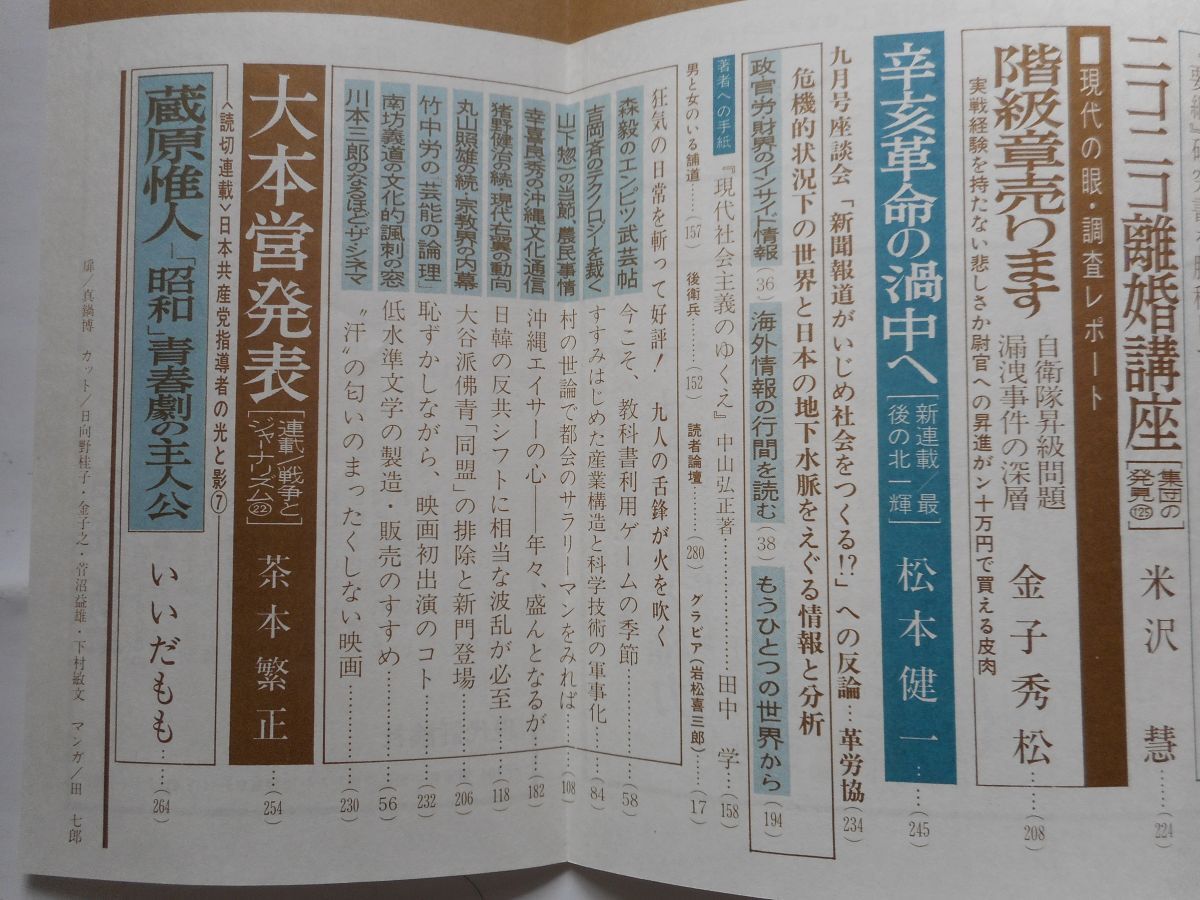 ニコニコ離婚講座［集団の発見125］米沢 慧……（224）
■現代の眼・調査レポート
階級章売ります 自衛隊昇級問題漏洩事件の深層 金子秀松……（208）
実戦経験を持たない悲しさか尉官への昇進がン十万円で買える皮肉
辛亥革命の渦中へ［新連載／最後の北一輝］松本健一……（245）
九月号座談会「新聞報道がいじめ社会をつくる!?」への反論…革労協（234）
危機的状況下の世界と日本の地下水脈をえぐる情報と分析
政・官・労・財界のインサイド情報（36） 海外情報の行間を読む（38） もうひとつの世界から（194）
著者への手紙 『現代社会主義のゆくえ』中山弘正著……田中 学…（158）
男と女のいる舗道……（157） 後衛兵……（152） 読者論壇……（280） グラビア（岩松喜三郎）……（17）
狂気の日常を斬って好評！ 九人の舌鋒が火を吹く
森毅のエンピツ武芸帖 今こそ、教科書利用ゲームの季節……（58）
吉岡斉のテクノロジーを裁く すすみはじめた産業構造と科学技術の軍事化（84）
「山下惣一」の当節、農民事情 村の世論で都会のサラリーマンをみれば…（108）
幸喜良秀の沖縄文化通信 沖縄エイサーの心――年々、盛んとなるが…（182）
猪野健治の続・現代右翼の動向 日韓の反共シフトに相当な波乱が必至…（118）
丸山照雄の続・宗教界の内幕 大谷派佛青「同盟」の排除と新門登場……（206）
竹中労の「芸能の論理」 恥ずかしながら、映画初出演のコト……（232）
南坊義道の文化的諷刺の窓 低水準文学の製造・販売のすすめ……（56）
川本三郎のなるほどザ・シネマ “汗”の匂いのまったくしない映画……（230）
大本営発表［連載／戦争とジャーナリズム22］茶本繁正……（254）
〈読切連載〉日本共産党指導者の光と影⑦
蔵原惟人―「昭和」青春劇の主人公 いいだもも……（264）
扉／真鍋博 カット／日向野桂子・金子之・菅沼益雄・下村敏文 マンガ／田 七郎